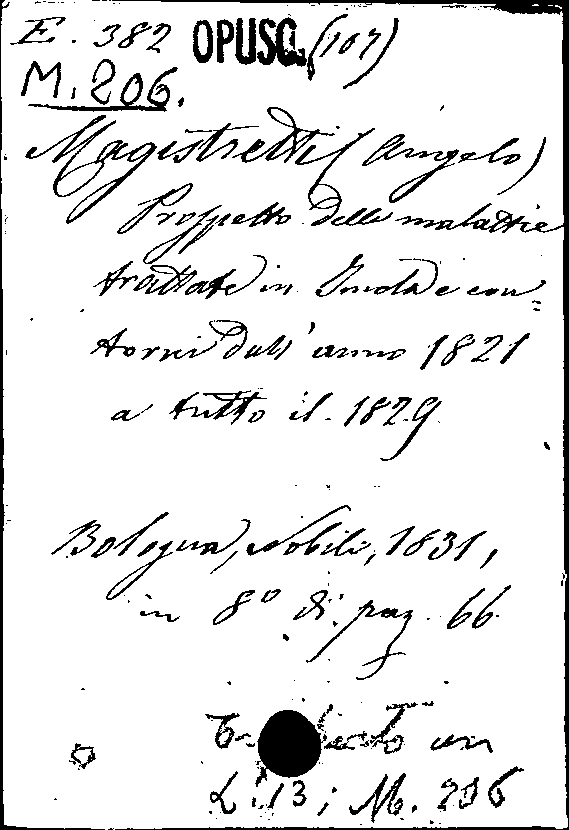 E. 382 OPUSC. (107)
M. 206.
Magistretti (Angelo)
Prospetto delle malattie
trattate in Imola e con=
torni dall' anno 1821
a tutto il 1829
Bologna, Nobili, 1831,
in 8° di pag. 66
un
L. 13; M. 206